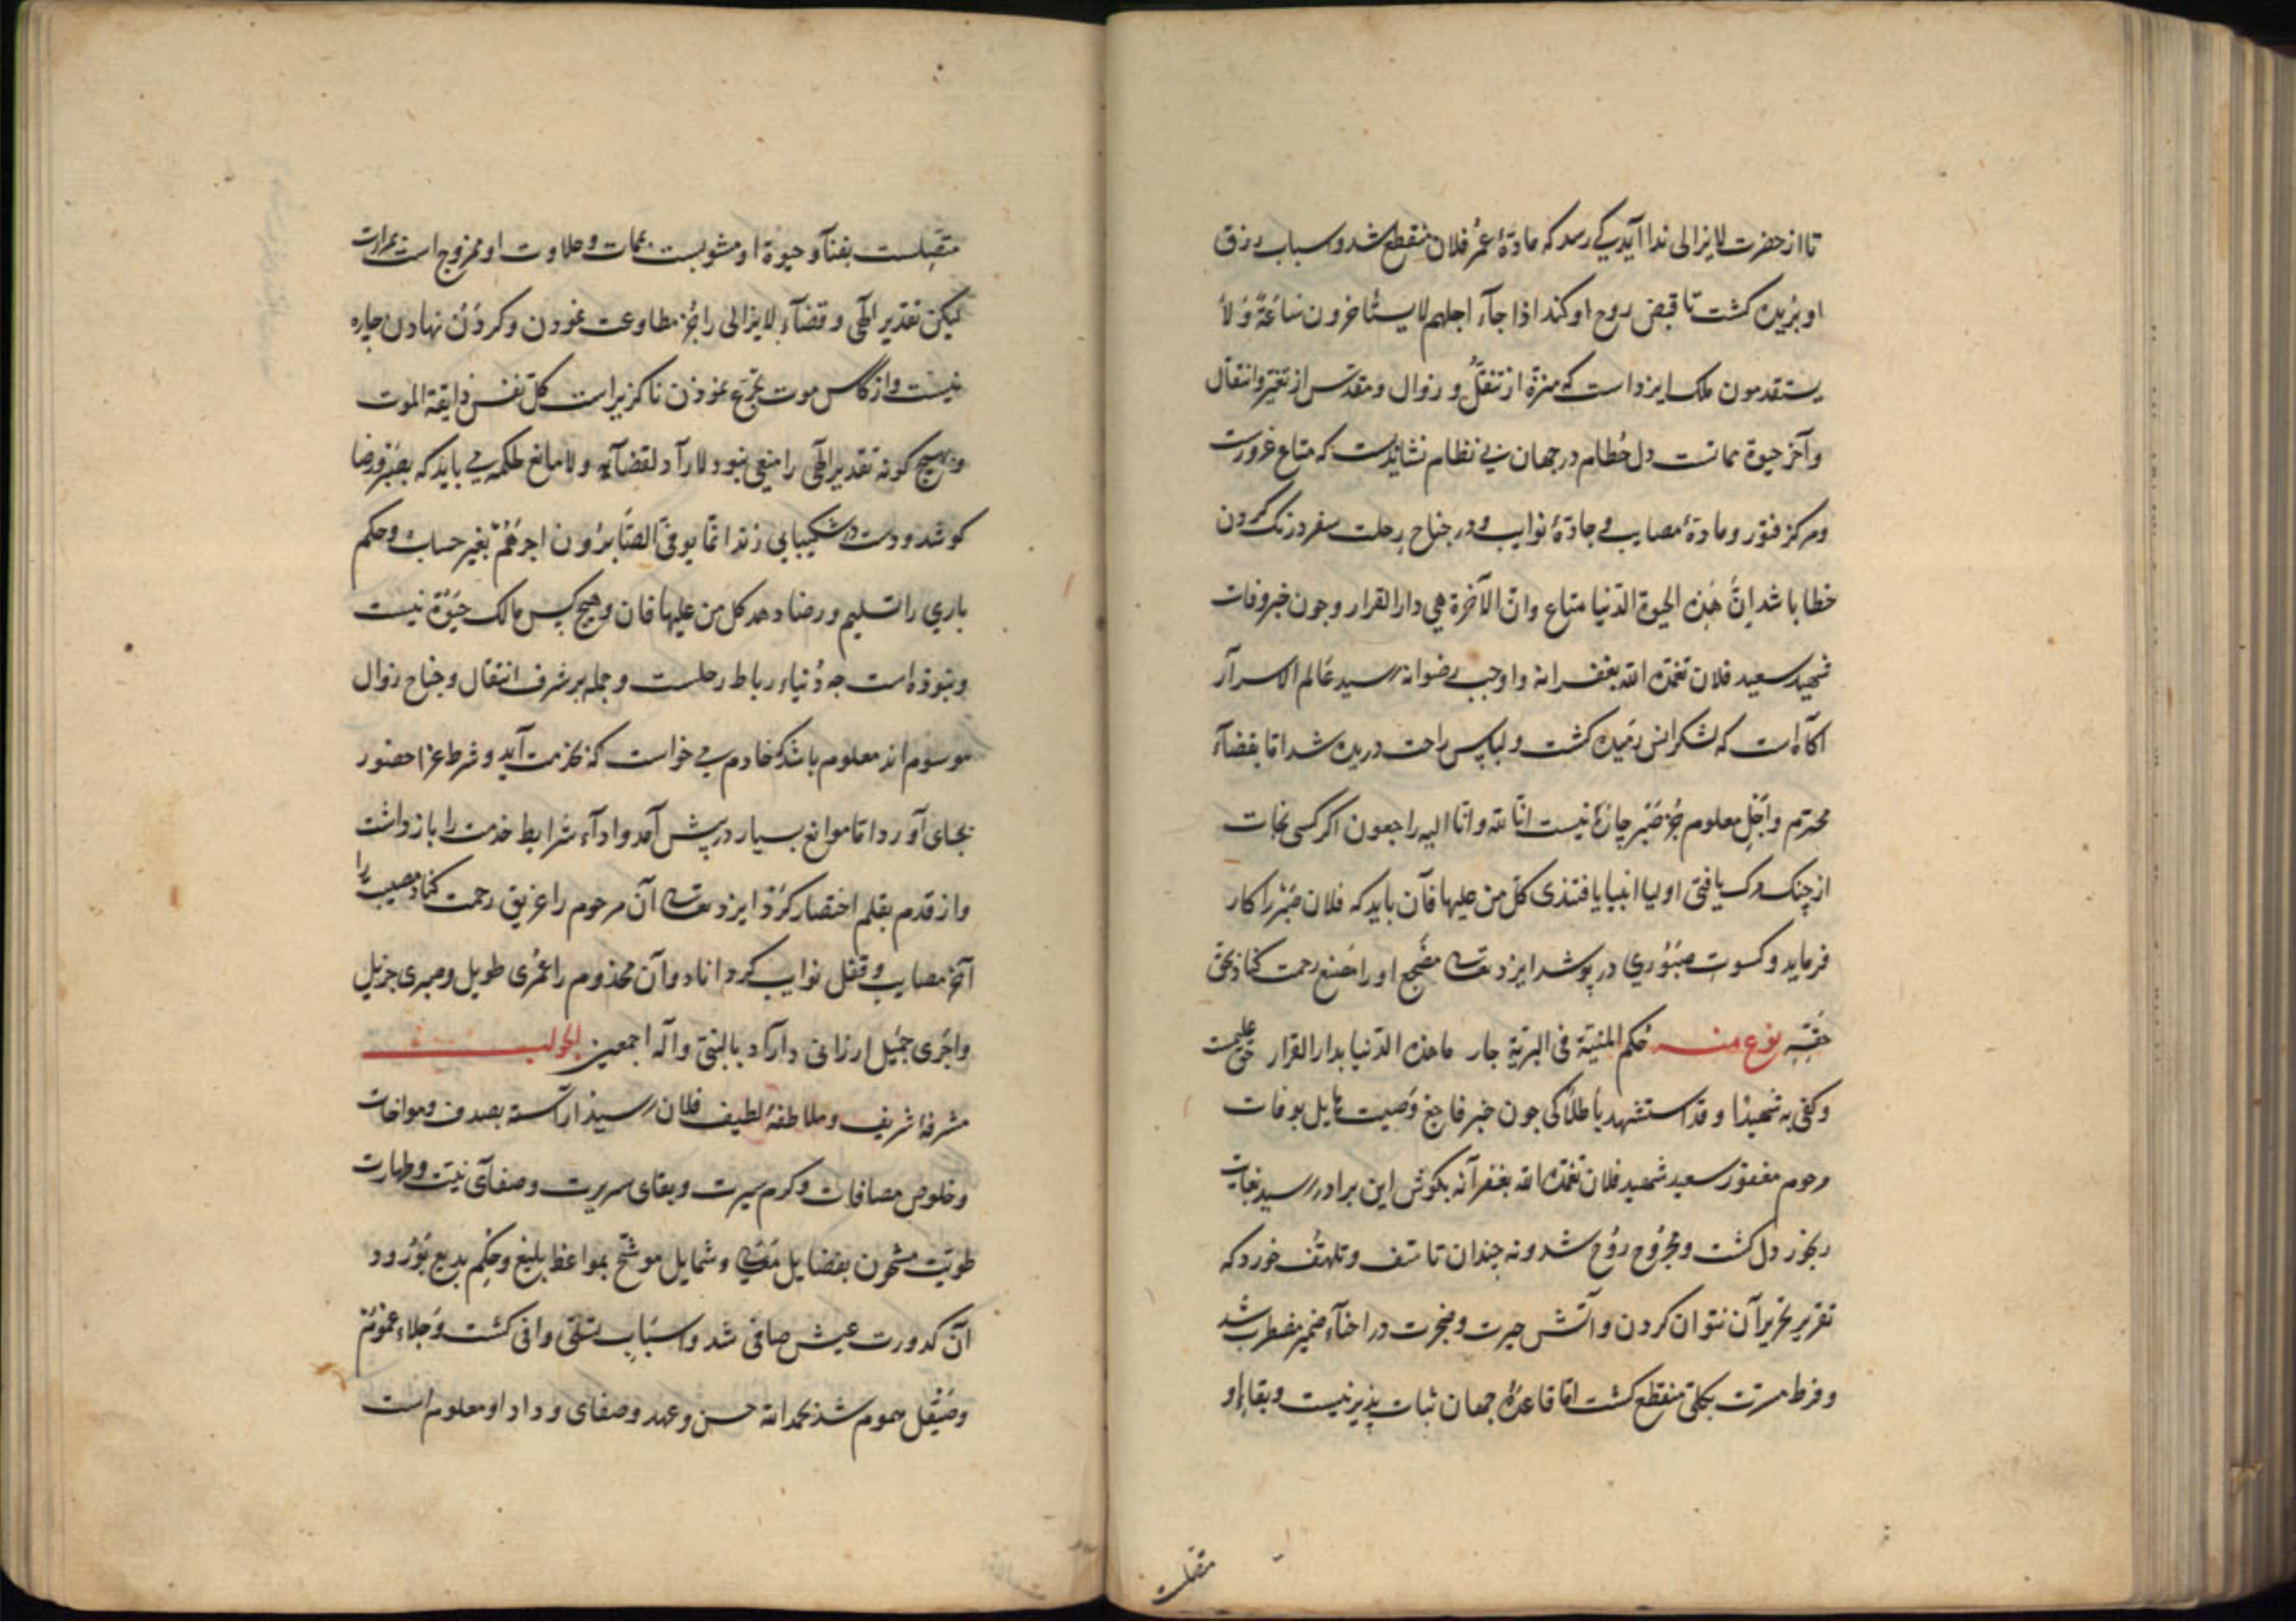 تا از حضرت لایزالی ندا آید کی رسد که مادّهٔ عمرُ فلان منقطع شد و اسباب رزق
او بُریده کشت تا قبض روح او کند اذا جآء اجلهم لا یستٔاخرون سَاعَةً وَلَا
یستقدمون ملک ایزد است که منزّه از تنقّل و زوال و مقدّس از تغیّر و انتقال
وآخر حیوة مماتست دل حُطام در جهان بی نظام نشاید بست که متاع غرورست
و مرکز فتور و مادهٔ مصایب و جادّهٔ نوایب و در جناح رحلت سفر درنک کردن
خطا باشد اِنَّ هٰذه الحیوة الدّنیا متاع وانّ الآخرة هی دار القرار و جون خبر وفات
شهید سعید فلان تغمّده الله بغفرانه و اوجب رضوانه رسید عَالم الاسرار
آکاه است که لشکر انس رَمیده کشت و لباس راحت دریده شد امّا بقضآء
محترم و اَجَل معلوم جُز صَبر چارهٔ نیست انّا لله وانّا الیه راجعون اکر کسی نجات
از چنک مرک یافتی اولیا انبیا یافتندی کلّ من علیها فآن باید که فلان صَبْر را کار
فرماید و کسوت صَبُوری در پوشد ایزد تعالی مضجع او را مَنبع رحمت کناد بحق
حَقّه نوع منه حُکم المنیّة فی البریّة جار ما هذه الدّنیا بدار القرار حق علیمست
و کفی به شهیدًا و قد استشهد باطلًا کی جون خبر فاجع و صیت هایل بوفات
مرحوم مغفور سعید شهید فلان تغمّده الله بغفرآنه بکوش این برادر رسید بغایت
رنجور دل کشت و مجرُوح رُوح شد و نه جندان تاسّف و تلهّف خورد که
تقریر تحریر آن نتوان کردن و آتش حیرت و ضجرت در احنآء ضمیر مضطرب شد
و فرط مسرّت بکلّی منقطع کشت امّا قاعدهٔ جهان ثبات پذیر نیست و بقاء او
متصلست
متّصِلست بفنآ و حیوة او مشوبست بممات و حلاوت او ممزوج است بمرارت
لیکن تقدیر الٓهی و قضآء لایزالی را جُز مطاوعت نمودن و کردَن نهادن چاره
نیست و از کاس موت تجرّع نمودن ناکزیر است کلّ نفس ذایقة الموت
و بهیچ کونه تقدیر الٓهی را منعی نبود لا رآدّ لقضآئه و لا مانع لحکمه می باید که بصَبْر و رضا
کوشد و دست در شکیبایی زند انّمَا یوفّی الصَّابرُون اجرَهُمْ بغیر حساب و حکم
باری را تسلیم و رضا دهد کل من علیها فان و هیچ کس مالک حَیٰوة نیست
و نبوذه است چه دُنیاء رباط رحلست و جمله بر شرف انتقال و جناح زوال
موسوم اند معلوم باشد که خادم می خواست که بخدمت آید و شرط عزا حضور
بجای آورد امّا موانع بسیار در پیش آمد و ادآء شرایط خدمت را باز داشت
و از قدم بقلم اختصار کَرْد ایزد تعالی آن مرحوم را غریق رحمت کناد و مصیبت را
آخر مصایب و قفل نوایب کرداناد و آن مخذوم را عُمْری طویل و صبری جزیل
و اجری جَمیل ارزانی داراد بالنبیّ و آله اجمعین الجواب
مشرفهٔ شریف و ملاطفهٔ لطیف فلان رسید آراسته بصدق و مواخات
و خلوص مصافات و کرم سیرت و بقای سریرت و صفآی نیّت و طهارت
طویّت مشحون بفضایل و شمایل موشّح بمواعظ بلیغ و حِکَم بدیع بَوُرود
آن کدورت عیش صافی شد و اسبَاب تسلّی وافی کشت و جلاء غموم
و صَیْقل هموم شد بحمد الله حسن و عهد و صفای وداد او معلوم است